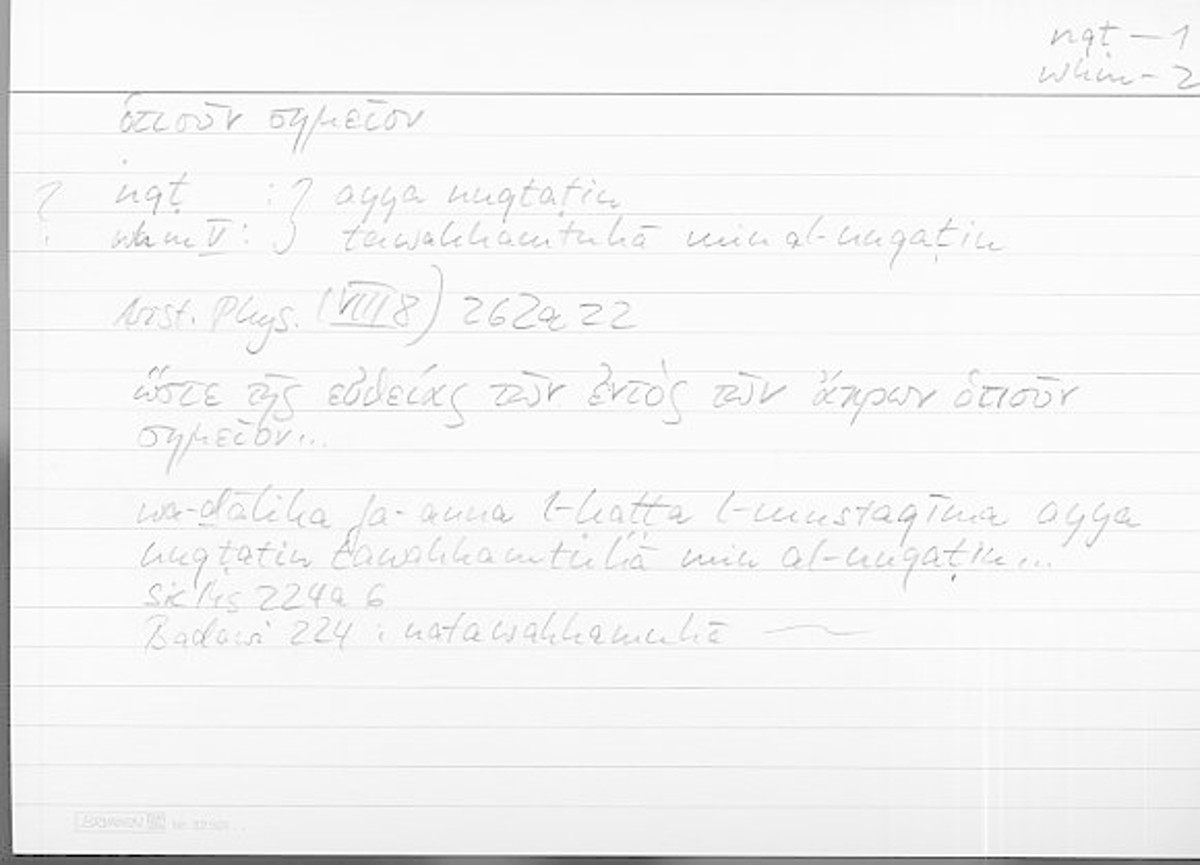 nqṭ – 1
whm – 2
ὁτιοῦν σημεῖον
? nqṭ : } ayya nuqtaṭin
whm V : } tawahhamtuhā min al-nuqaṭin
Arist. Phys. (VIII 8) 262a 22
ὥστε τῆς εὐθείας τῶν ἐντὸς τῶν ἄκρων ὁτιοῦν
σημεῖον...
wa-ḏālika fa-anna l-ḫaṭṭa l-mustaqīma ayya
nuqṭatin tawahhamtuhā min al-nuqaṭin...
sic Hs 224a 6
Badawi 224 : natawahhamuhā